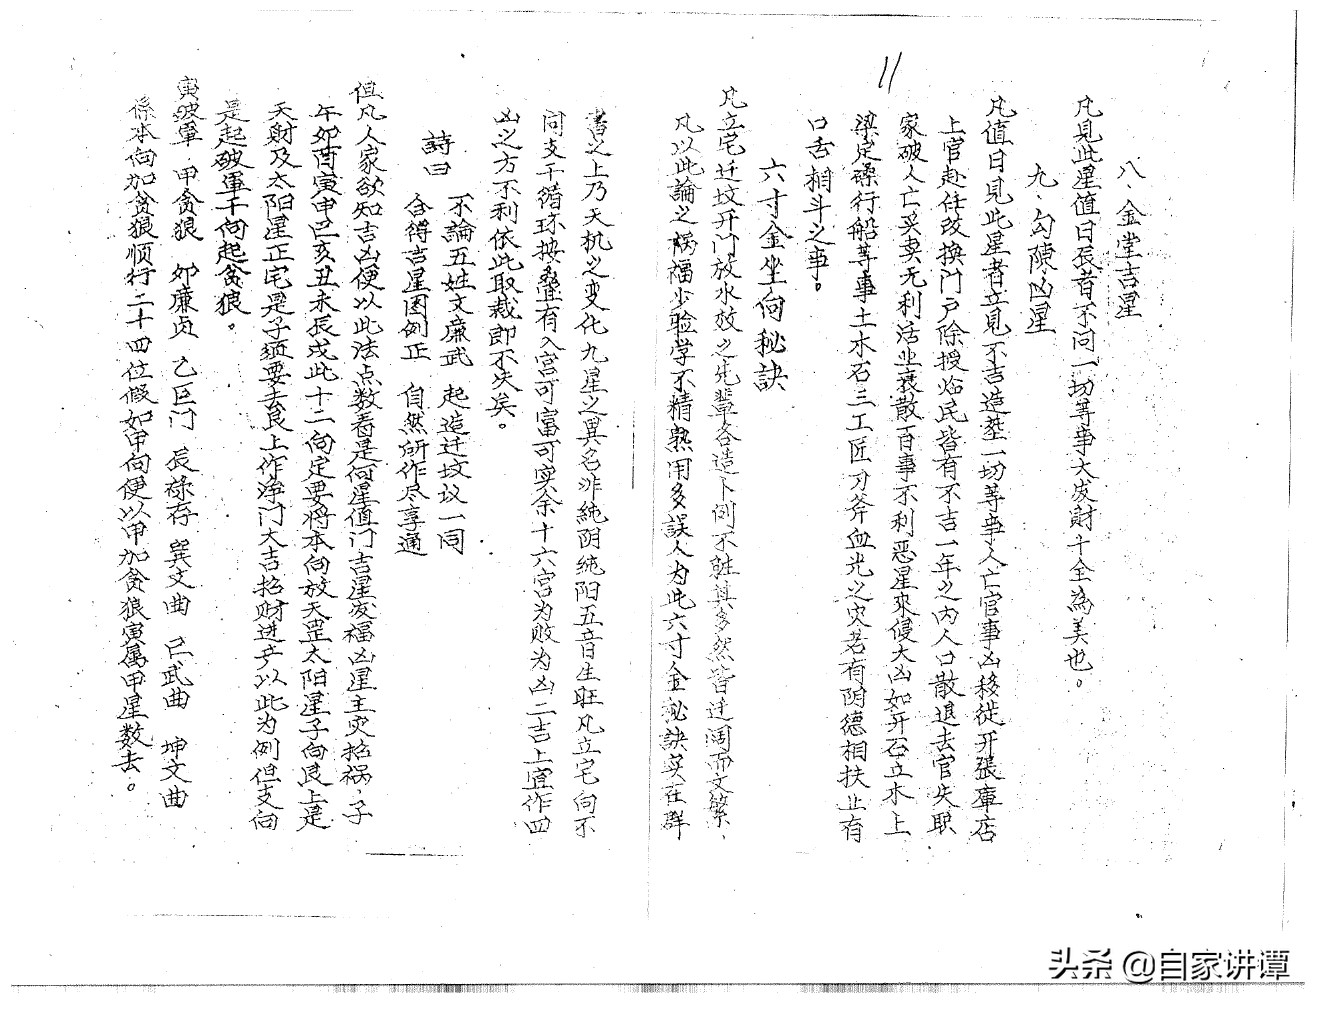 11
八、金堂吉星
凡見此星值日辰者不问一切等事大发財十全為美也。
九、勾陳凶星
凡值日見此星者立見不吉造塟一切等事人亡官事凶移徙开張庫店
上官赴任改换门户除授临民皆有不吉一年之内人口散退去官失职
家破人亡买卖无利活业衰散百事不利恶星來侵大凶如开石立木上
梁定磉行船等事土木石三工匠刃斧血光之灾若有阴德相扶止有
口舌相斗之事。
六寸金坐向秘訣
凡立宅迁坟开门放水放之先輩各造卜例不
凡以此論之祸福少验学不精熟用多誤人为此六寸金秘訣实在群
書之上乃天机之变化九星之異名非純阴純阳五音生旺凡立宅向不
问支干循环按叠有入宫可富可实余十六宫为败为凶二吉上宜作四
凶之方不利依此取裁即不失矣。
詩曰
不論五姓文廉武　起造迁坟议一同
合得吉星图例正　自然所作尽享通
但凡人家欲知吉凶便以此法点数看是何星值门吉星发福凶星主灾招祸，子
午卯酉寅申巳亥丑未辰戌此十二向定要将本向放天罡太阳星子向艮上是
天財及太阳星正宅是子须要去艮上作净门大吉招财进产以此为例但支向
是起破軍干向起貪狼。
寅破軍　甲貪狼　卯廉贞　乙巨门　辰祿存　巽文曲　巳武曲　坤文曲
係本向加貪狼顺行二十四位假如甲向便以甲加貪狼寅属甲星数去。
头条 @自家讲谭